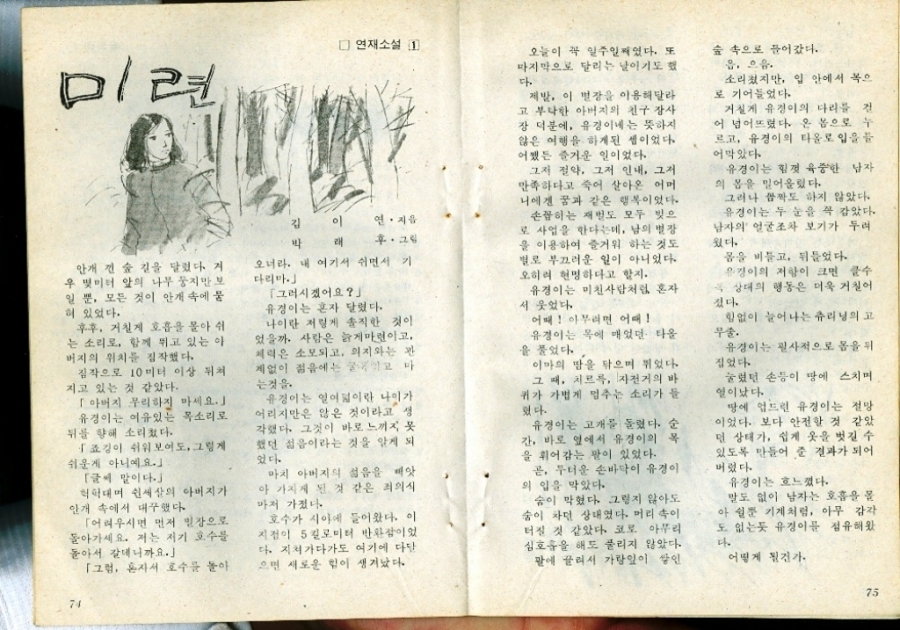 □ 연재소설 1
미련
김 이 연·지음
박 래 후·그림
안개 낀 숲 길을 달렸다. 겨
우 몇미터 앞의 나무 둥치만 보
일 뿐, 모든 것이 안개 속에 묻
혀 있었다.
후후, 거칠게 호흡을 몰아 쉬
는 소리로, 함께 뛰고 있는 아
버지의 위치를 짐작했다.
짐작으로 10미터 이상 뒤쳐
지고 있는 것 같았다.
「아버지 무리하지 마세요.」
유경이는 여유있는 목소리로
뒤를 향해 소리쳤다.
「죠깅이 쉬워보여도, 그렇게
쉬운게 아니예요.」
「글쎄 말이다.」
헉헉대며 원세상의 아버지가
안개 속에서 대꾸했다.
「어려우시면 먼저 별장으로
돌아가세요. 저는 저기 호수를
돌아서 갈테니까요.」
「그럼, 혼자서 호수를 돌아
오너라. 내 여기서 쉬면서 기
다리마.」
「그러시겠어요?」
유경이는 혼자 달렸다.
나이란 저렇게 솔직한 것이
었을까. 사람은 늙게마련이고,
체력은 소모되고, 의지와는 관
계없이 젊음에는 마
는것을.
유경이는 열여덟이란 나이가
어리지만은 않은 것이라고 생
각했다. 그것이 바로 느끼지 못
했던 젊음이라는 것을 알게 되
었다.
마치 아버지의 젊음을 빼앗
아 가지게 된 것 같은 죄의식
마저 가졌다.
호수가 시야에 들어왔다. 이
지점이 5킬로미터 반환점이었
다. 지쳐가다가도 여기에 다닫
으면 새로운 힘이 생겨났다.
74
오늘이 꼭 일주일째였다. 또
마지막으로 달리는 날이기도 했
다.
제발, 이 별장을 이용해달라
고 부탁한 아버지의 친구 장사
장 덕분에, 유경이네는 뜻하지
않은 여행을 하게된 셈이었다.
어쨌든 즐거운 일이었다.
그저 절약, 그저 인내, 그저
만족하다고 죽어 살아온 어머
니에겐 꿈과 같은 행복이었다.
손꼽히는 재벌도 모두 빚으
로 사업을 한다는데, 남의 별장
을 이용하여 즐거워 하는 것도
별로 부끄러운 일이 아니었다.
오히려 현명하다고 할지.
유경이는 미친사람처럼 혼자
서 웃었다.
어때! 아무려면 어때!
유경이는 목에 매었던 타올
을 풀었다.
이마의 땀을 닦으며 뛰었다.
그 때, 치르륵, 자전거의 바
퀴가 가볍게 멈추는 소리가 들
렸다.
유경이는 고개를 돌렸다. 순
간, 바로 옆에서 유경이의 목
을 휘어감는 팔이 있었다.
곧, 두터운 손바닥이 유경이
의 입을 막았다.
숨이 막혔다. 그렇지 않아도
숨이 차던 상태였다. 머리 속이
터질 것 같았다. 코로 아무리
심호흡을 해도 풀리지 않았다.
팔에 끌려서 가랑잎이 쌓인
숲 속으로 들어갔다.
읍, 으음.
소리쳤지만, 입 안에서 목으
로 기어들었다.
거칠게 유경이의 다리를 걷
어 넘어뜨렸다. 온 몸으로 누
르고, 유경이의 타올로 입을 틀
어막았다.
유경이는 힘껏 육중한 남자
의 몸을 밀어올렸다.
그러나 꼼짝도 하지 않았다.
유경이는 두 눈을 꽉 감았다.
남자의 얼굴조차 보기가 두려
웠다.
몸을 비틀고, 뒤틀었다.
유경이의 저항이 크면 클수
록 상대의 행동은 더욱 거칠어
졌다.
힘없이 늘어나는 츄리닝의 고
무줄.
유경이는 필사적으로 몸을 뒤
집었다.
눌렸던 손등이 땅에 스치며
열이 났다.
땅에 엎드린 유경이는 절망
이었다. 보다 안전할 것 같았
던 상태가, 쉽게 옷을 벗길 수
있도록 만들어 준 결과가 되어
버렸다.
유경이는 흐느꼈다.
말도 없이 남자는 호흡을 몰
아 쉴뿐 기계처럼, 아무 감각
도 없는듯 유경이를 점유해왔
다.
어떻게 된건가.
75